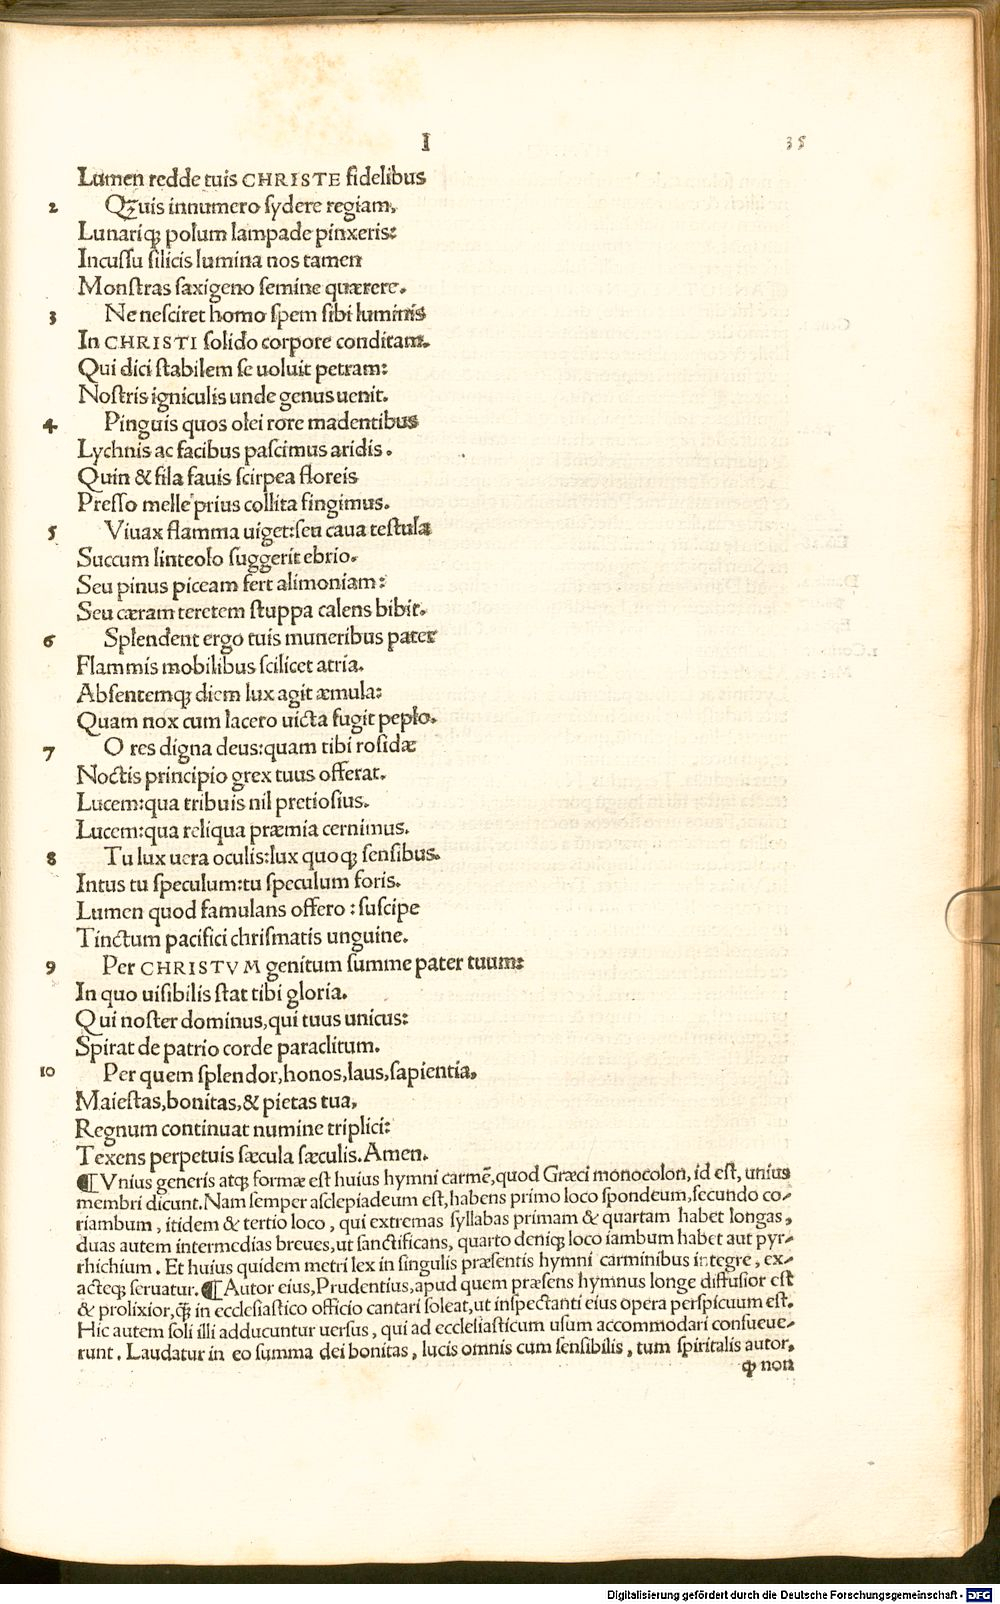 I 35
Lumen redde tuis CHRISTE fidelibus
2 Quis innumero sydere regiam,
Lunariq; polum lampade pinxeris:
Incussu silicis lumina nos tamen
Monstras saxigeno semine quærere.
3 Ne nesciret homo spem sibi luminis
In CHRISTI solido corpore conditam.
Qui dici stabilem se uoluit petram:
Nostris igniculis unde genus uenit.
4 Pinguis quos olei rore madentibus
Lychnis ac facibus pascimus aridis.
Quin & fila fauis scirpea floreis
Presso melle prius collita fingimus.
5 Viuax flamma uiget: seu caua testula
Succum linteolo suggerit ebrio.
Seu pinus piceam fert alimoniam:
Seu cæram teretem stuppa calens bibit.
6 Splendent ergo tuis muneribus pater
Flammis mobilibus scilicet atria.
Absentemq; diem lux agit æmula:
Quam nox cum lacero uicta fugit peplo.
7 O res digna deus: quam tibi rosidæ
Noctis principio grex tuus offerat.
Lucem: qua tribuis nil pretiosius.
Lucem: qua reliqua præmia cernimus.
8 Tu lux uera oculis: lux quoq; sensibus.
Intus tu speculum: tu speculum foris.
Lumen quod famulans offero: suscipe
Tinctum pacifici chrismatis unguine.
9 Per CHRISTVM genitum summe pater tuum:
In quo uisibilis stat tibi gloria.
Qui noster dominus, qui tuus unicus:
Spirat de patrio corde paraclitum.
10 Per quem splendor, honos, laus, sapientia,
Maiestas, bonitas, & pietas tua,
Regnum continuat numine triplici:
Texens perpetuis sæcula sæculis. Amen.
¶ Vnius generis atq; formæ est huius hymni carmē, quod Græci monocolon, id est, unius
membri dicunt. Nam semper asclepiadeum est, habens primo loco spondeum, secundo co-
riambum, itidem & tertio loco, qui extremas syllabas primam & quartam habet longas,
duas autem intermedias breues, ut sanctificans, quarto deniq; loco iambum habet aut pyr-
rhichium. Et huius quidem metri lex in singulis præsentis hymni carminibus integre, ex-
acteq; seruatur. ¶ Autor eius, Prudentius, apud quem præsens hymnus longe diffusior est
& prolixior, q̃ in ecclesiastico officio cantari soleat, ut inspectanti eius opera perspicuum est.
Hic autem soli illi adducuntur uersus, qui ad ecclesiasticum usum accommodari consueue-
runt. Laudatur in eo summa dei bonitas, lucis omnis cum sensibilis, tum spiritalis autor,
ꝙ non
Digitalisierung gefördert durch die Deutsche Forschungsgemeinschaft - DFG